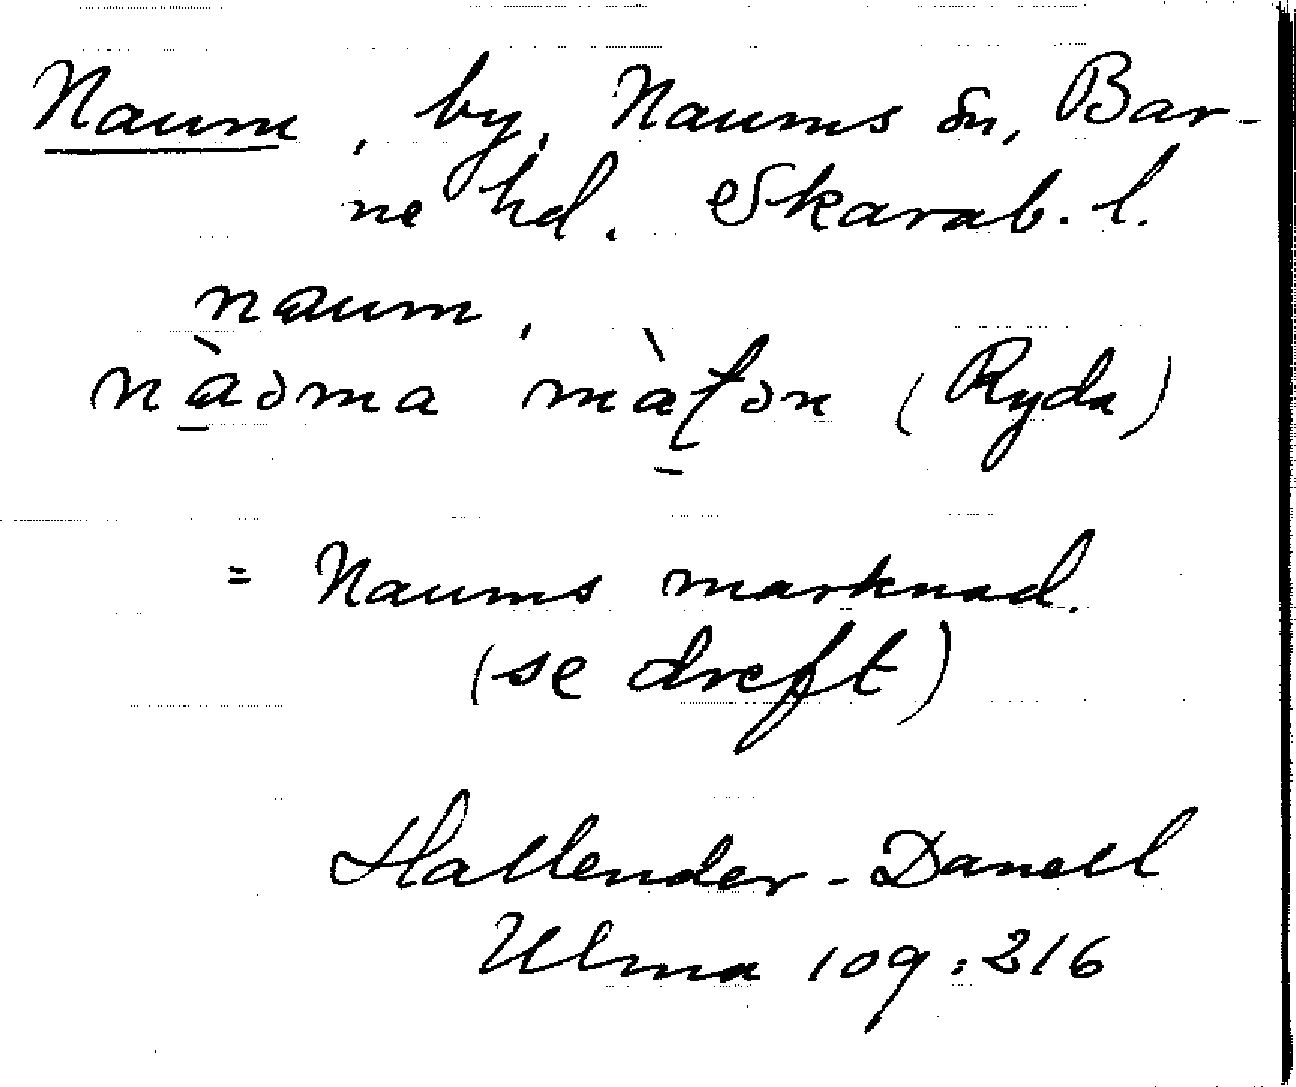 Naum, by, Naums sn, Bar-
ne hd. Skarab. l.
naum,
nàəma màʈən (Ryda)
= Naums marknad.
(se dreft)
Hallender - Danell
Ulma 109:216